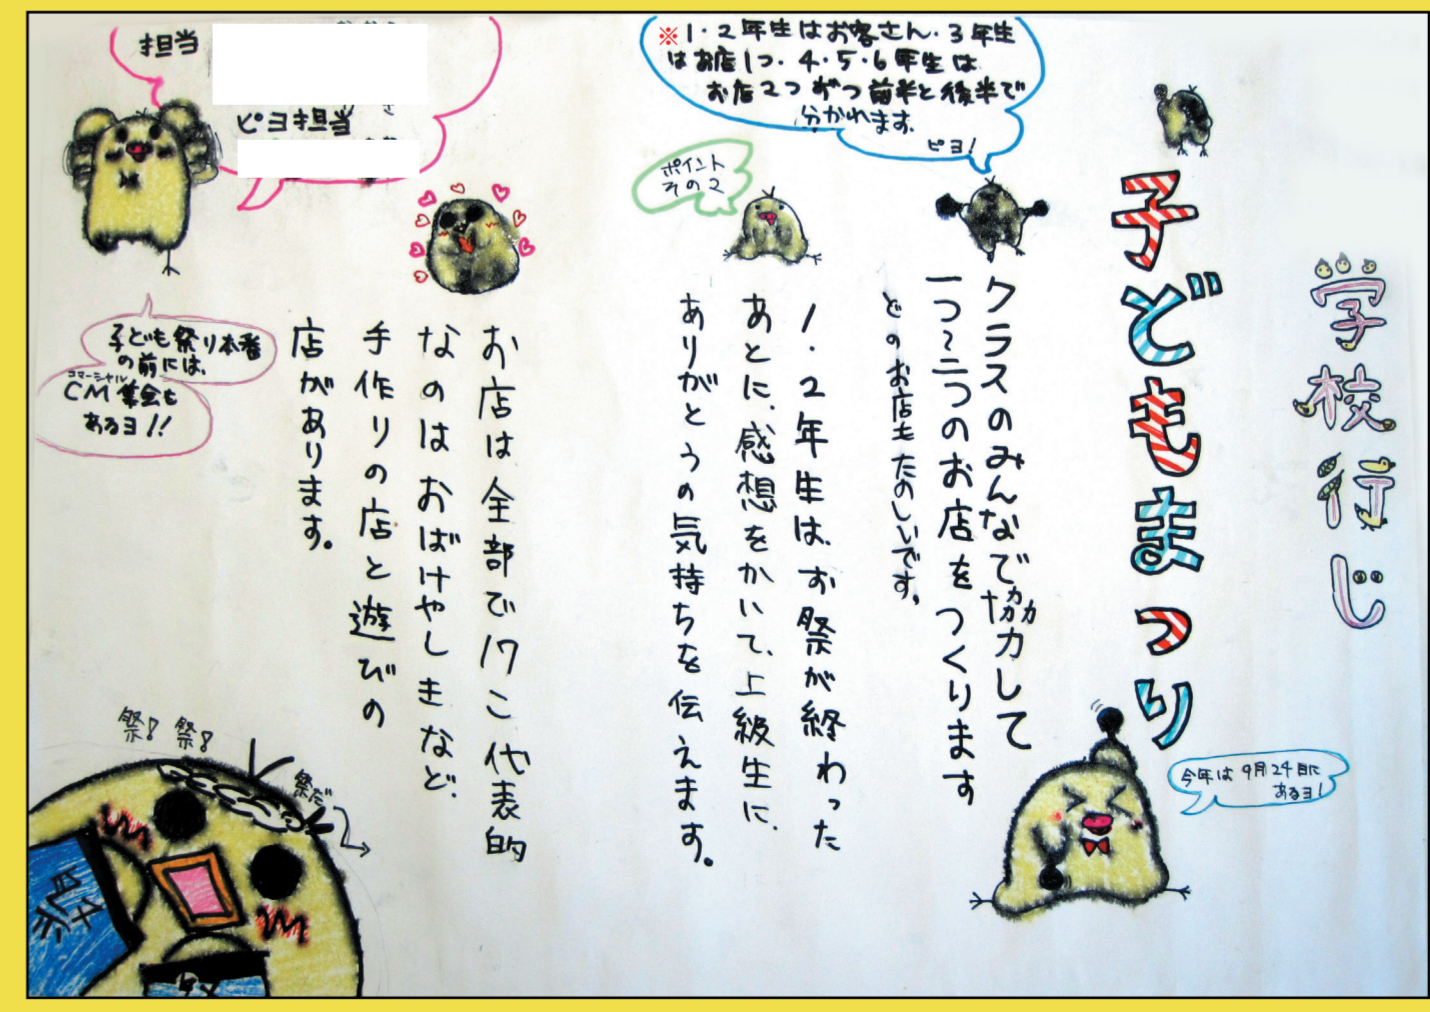 学校行じ
子どもまつり
今年は9月24日に
あるヨ!
※1・2年生はお客さん・3年生
はお店1つ・4・5・6年生は
お店2つずつ前半と後半で
分かれます。
ピヨ!
クラスのみんなで協力して
一つ〜二つのお店をつくります
どのお店もたのしいです。
ポイント
その2
1・2年生は、お祭が終わった
あとに、感想をかいて、上級生に、
ありがとうの気持ちを伝えます。
お店は全部で17こ代表的
なのはおばけやしきなど、
手作りの店と遊びの
店があります。
担当
ピヨ担当
子ども祭り本番
の前には、
コマーシャル
CM集会も
あるヨ!!
祭! 祭!
祭だ